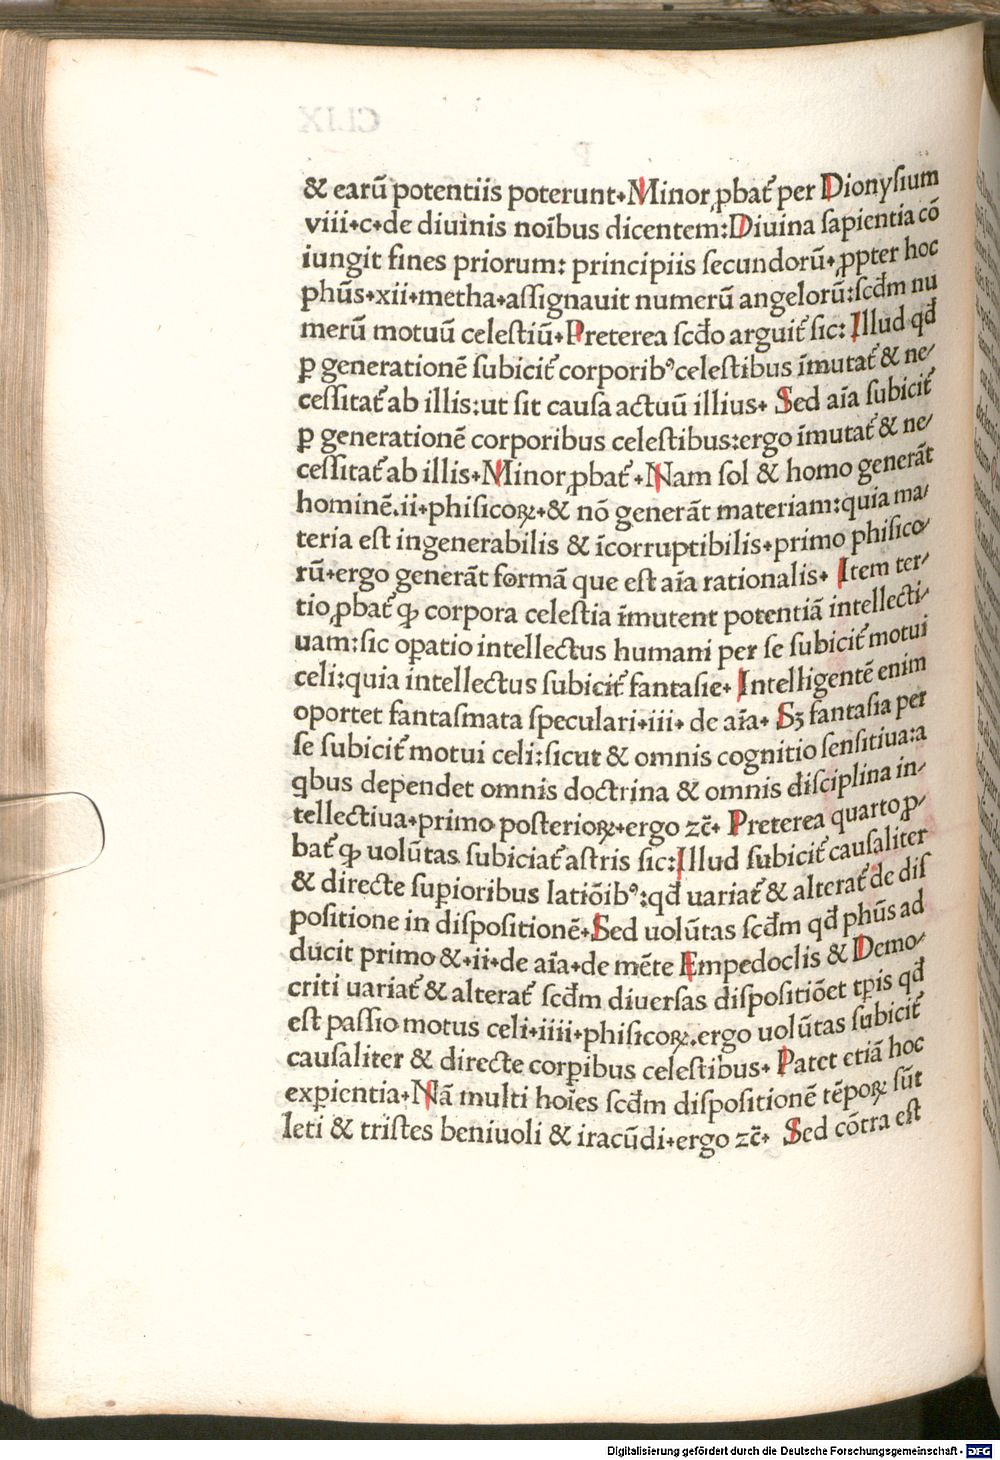 & earū potentiis poterunt. Minor ꝓbat̄ per Dionysium
viii.c.de diuinis noībus dicentem: Diuina sapientia cō
iungit fines priorum: principiis secundorū. ꝓpter hoc
phūs.xii.metha.assignauit numerū angelorū:scđm nu
merū motuū celestiū. Preterea scđo arguit̄ sic: Illud qđ
ꝑ generationē subicit̄ corporibꝰ celestibus īmutat̄ & ne/
cessitat̄ ab illis:ut sit causa actuū illius. Sed aīa subicit̄
ꝑ generationē corporibus celestibus:ergo īmutat̄ & ne/
cessitat̄ ab illis. Minor ꝓbat̄. Nam sol & homo generāt
hominē.ii.phisicoꝝ.& nō generāt materiam:quia ma/
teria est ingenerabilis & īcorruptibilis.primo phisico/
rū.ergo generāt formā que est aīa rationalis. Item ter/
tio ꝓbat̄ ꝙ corpora celestia īmutent potentiā intellecti/
uam:sic oꝑatio intellectus humani per se subicit̄ motui
celi:quia intellectus subicit̄ fantasie. Intelligentē enim
oportet fantasmata speculari.iii. de aīa. Sꝫ fantasia per
se subicit̄ motui celi:sicut & omnis cognitio sensitiua:a
qbus dependet omnis doctrina & omnis disciplina in/
tellectiua.primo posterioꝝ.ergo zc̄. Preterea quarto ꝓ/
bat̄ ꝙ uolūtas subiciat̄ astris sic: Illud subicit̄ causaliter
& directe suꝑioribus latiōibꝰ:qđ uariat̄ & alterat̄ de dis
positione in dispositionē. Sed uolūtas scđm qđ phūs ad
ducit primo &.ii.de aīa.de mēte Empedoclis & Demo/
criti uariat̄ & alterat̄ scđm diuersas dispositiōet tꝑis qđ
est passio motus celi.iiii.phisicoꝝ.ergo uolūtas subicit̄
causaliter & directe corꝑibus celestibus. Patet etiā hoc
exꝑientia. Nā multi hoīes scđm dispositionē tēpoꝝ sūt
leti & tristes beniuoli & iracūdi.ergo zc̄. Sed cōtra est
Digitalisierung gefördert durch die Deutsche Forschungsgemeinschaft - DFG